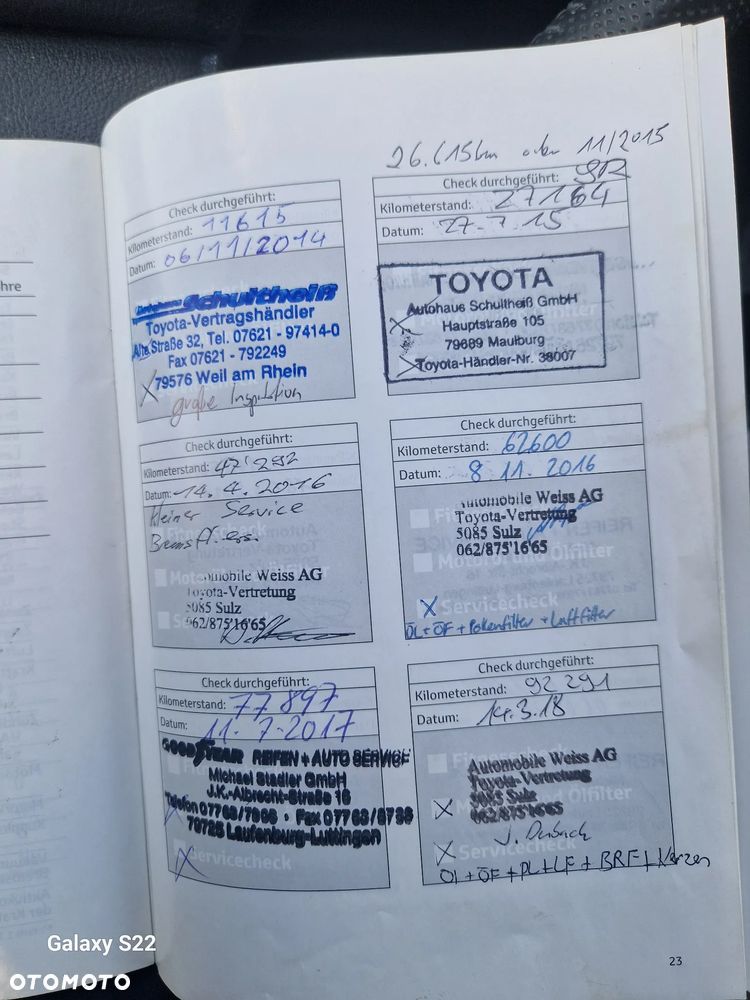 hre
26.615km oder 11/2015
Check durchgeführt:
Kilometerstand: 11615
Datum: 06/11/2014
Schultheiß
Toyota-Vertragshändler
Alte Straße 32, Tel. 07621 - 97414-0
Fax 07621 - 792249
79576 Weil am Rhein
große Inspektion
Check durchgeführt:
Kilometerstand: 27164
Datum: 27.7.15
TOYOTA
Autohaus Schultheiß GmbH
Hauptstraße 105
79689 Maulburg
Toyota-Händler-Nr. 38007
Check durchgeführt:
Kilometerstand: 47'292
Datum: 14.4.2016
kleiner Service
Bremsfl. ers.
Automobile Weiss AG
Toyota-Vertretung
5085 Sulz
062/875'16'65
Check durchgeführt:
Kilometerstand: 62600
Datum: 8.11.2016
Automobile Weiss AG
Toyota-Vertretung
5085 Sulz
062/875'16'65
Motoröl und Ölfilter
Servicecheck
ÖL + ÖF + Pollenfilter + Luftfilter
Check durchgeführt:
Kilometerstand: 77897
Datum: 11.7.2017
GOODYEAR REIFEN + AUTO SERVICE
Michael Stadler GmbH
J.K.-Albrecht-Straße 16
79725 Laufenburg-Luttingen
Servicecheck
Check durchgeführt:
Kilometerstand: 92291
Datum: 14.3.18
Fitnesscheck
Automobile Weiss AG
Toyota-Vertretung
5085 Sulz
062/875'16'65
Servicecheck
ÖL + ÖF + PL + LF + BRF + Kerzen
23
Galaxy S22
OTOMOTO